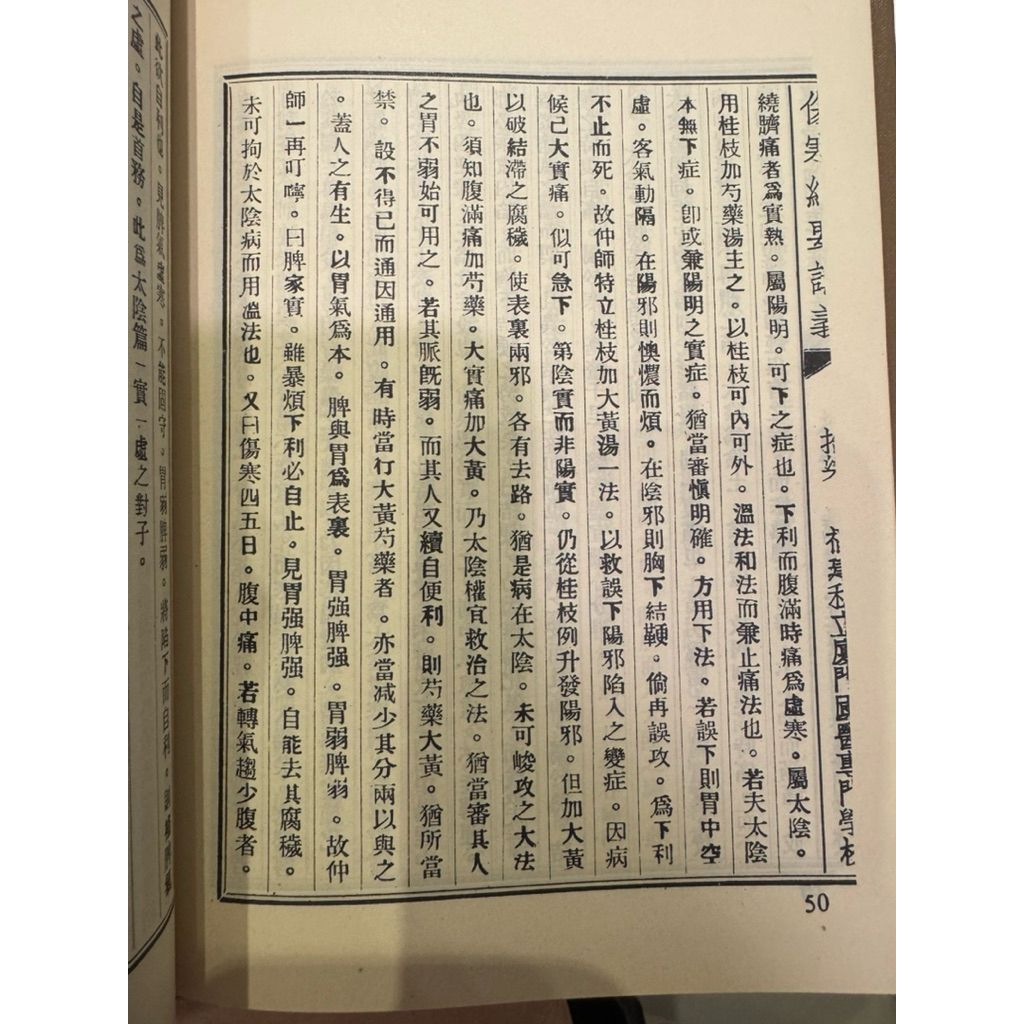 傷寒綱要講義
福建私立廈門國醫專門學校
繞臍痛者爲實熱。屬陽明。可下之症也。下利而腹滿時痛爲虛寒。屬太陰。
用桂枝加芍藥湯主之。以桂枝可內可外。溫法和法而兼止痛法也。若夫太陰
本無下症。卽或兼陽明之實症。猶當審愼明確。方用下法。若誤下則胃中空
虛。客氣動隔。在陽邪則懊憹而煩。在陰邪則胸下結鞕。倘再誤攻。爲下利
不止而死。故仲師特立桂枝加大黃湯一法。以救誤下陽邪陷入之變症。因病
候已大實痛。似可急下。第陰實而非陽實。仍從桂枝例升發陽邪。但加大黃
以破結滯之腐穢。使表裏兩邪。各有去路。猶是病在太陰。未可峻攻之大法
也。須知腹滿痛加芍藥。大實痛加大黃。乃太陰權宜救治之法。猶當審其人
之胃不弱始可用之。若其脈旣弱。而其人又續自便利。則芍藥大黃。猶所當
禁。設不得已而通因通用。有時當行大黃芍藥者。亦當减少其分兩以與之
。蓋人之有生。以胃氣爲本。脾與胃爲表裏。胃强脾强。胃弱脾弱。故仲
師一再叮嚀。曰脾家實。雖暴煩下利必自止。見胃强脾强。自能去其腐穢。
未可拘於太陰病而用溫法也。又曰傷寒四五日。腹中痛。若轉氣趨少腹者。
50
更脾氣虛寒。不能固守。胃弱脾弱。將陷下而自利。
之虛。自是首務。此爲太陰篇一實一虛之對子。